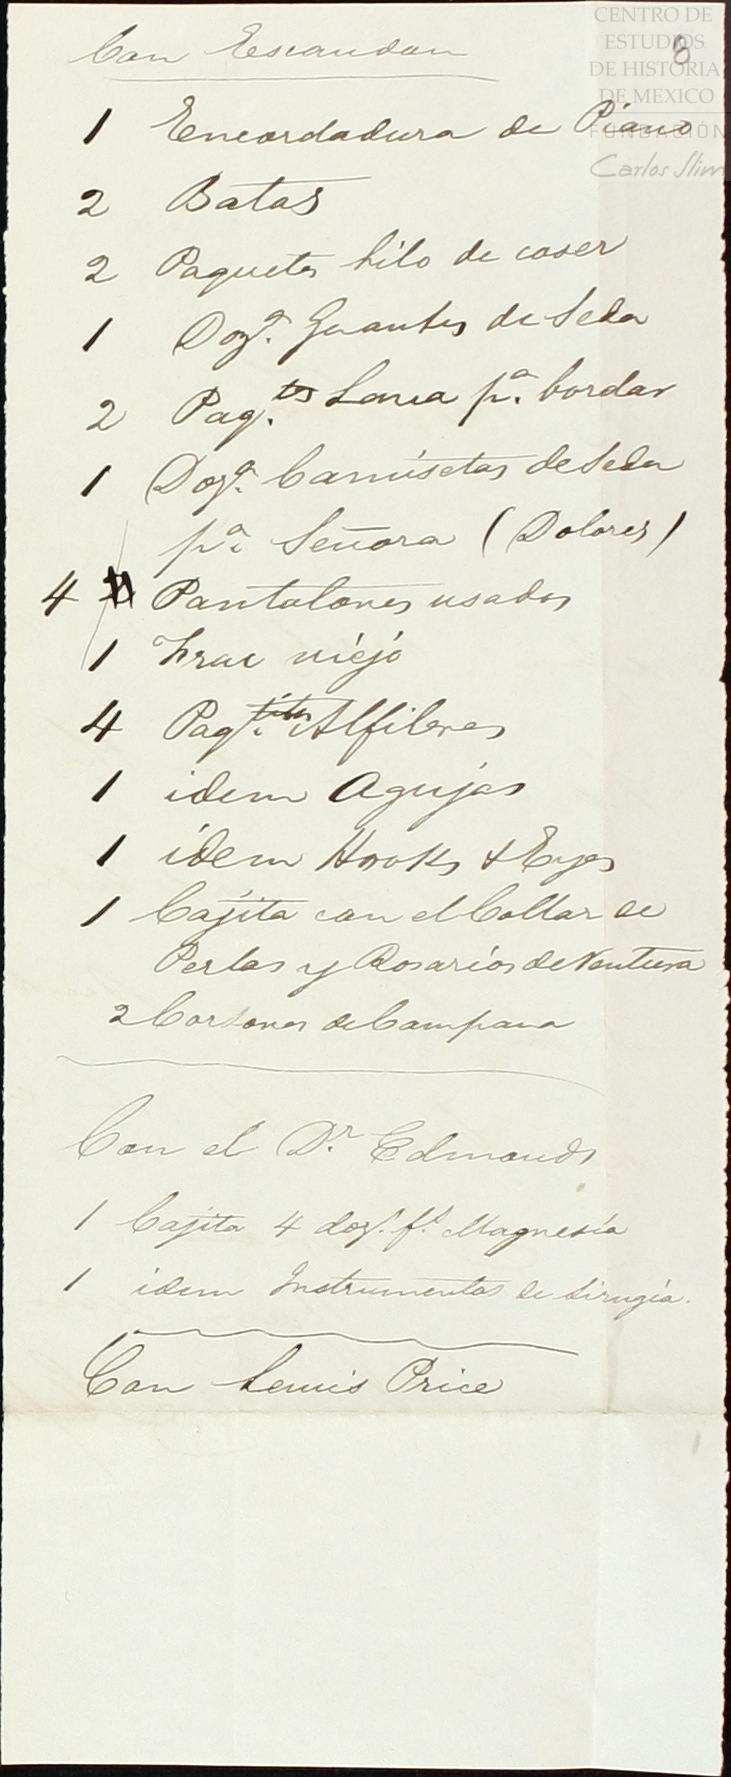 CENTRO DE
ESTUDIOS
DE HISTORIA
DE MEXICO
FUNDACIÓN
Carlos Slim
8
Con Escandon
1 Encordadura de Piano
2 Batas
2 Paquetes hilo de coser
1 Doz.a Guantes de Seda
2 Paq.tes Lana p.a bordar
1 Doz.a Camisetas de Seda
p.a Señora (Dolores)
4 Pantalones usados
1 Frac viejo
4 Paq.titos Alfileres
1 idem Agujas
1 idem Hooks & Eyes
1 Cajita con el Collar de
Perlas y Rosarios de Ventura
2 Cordones de Campana
Con el Dr. Edmonds
1 Cajita 4 doz.s f.s Magnesia
1 idem Instrumentos de Sirugía.
Con Lewis Price